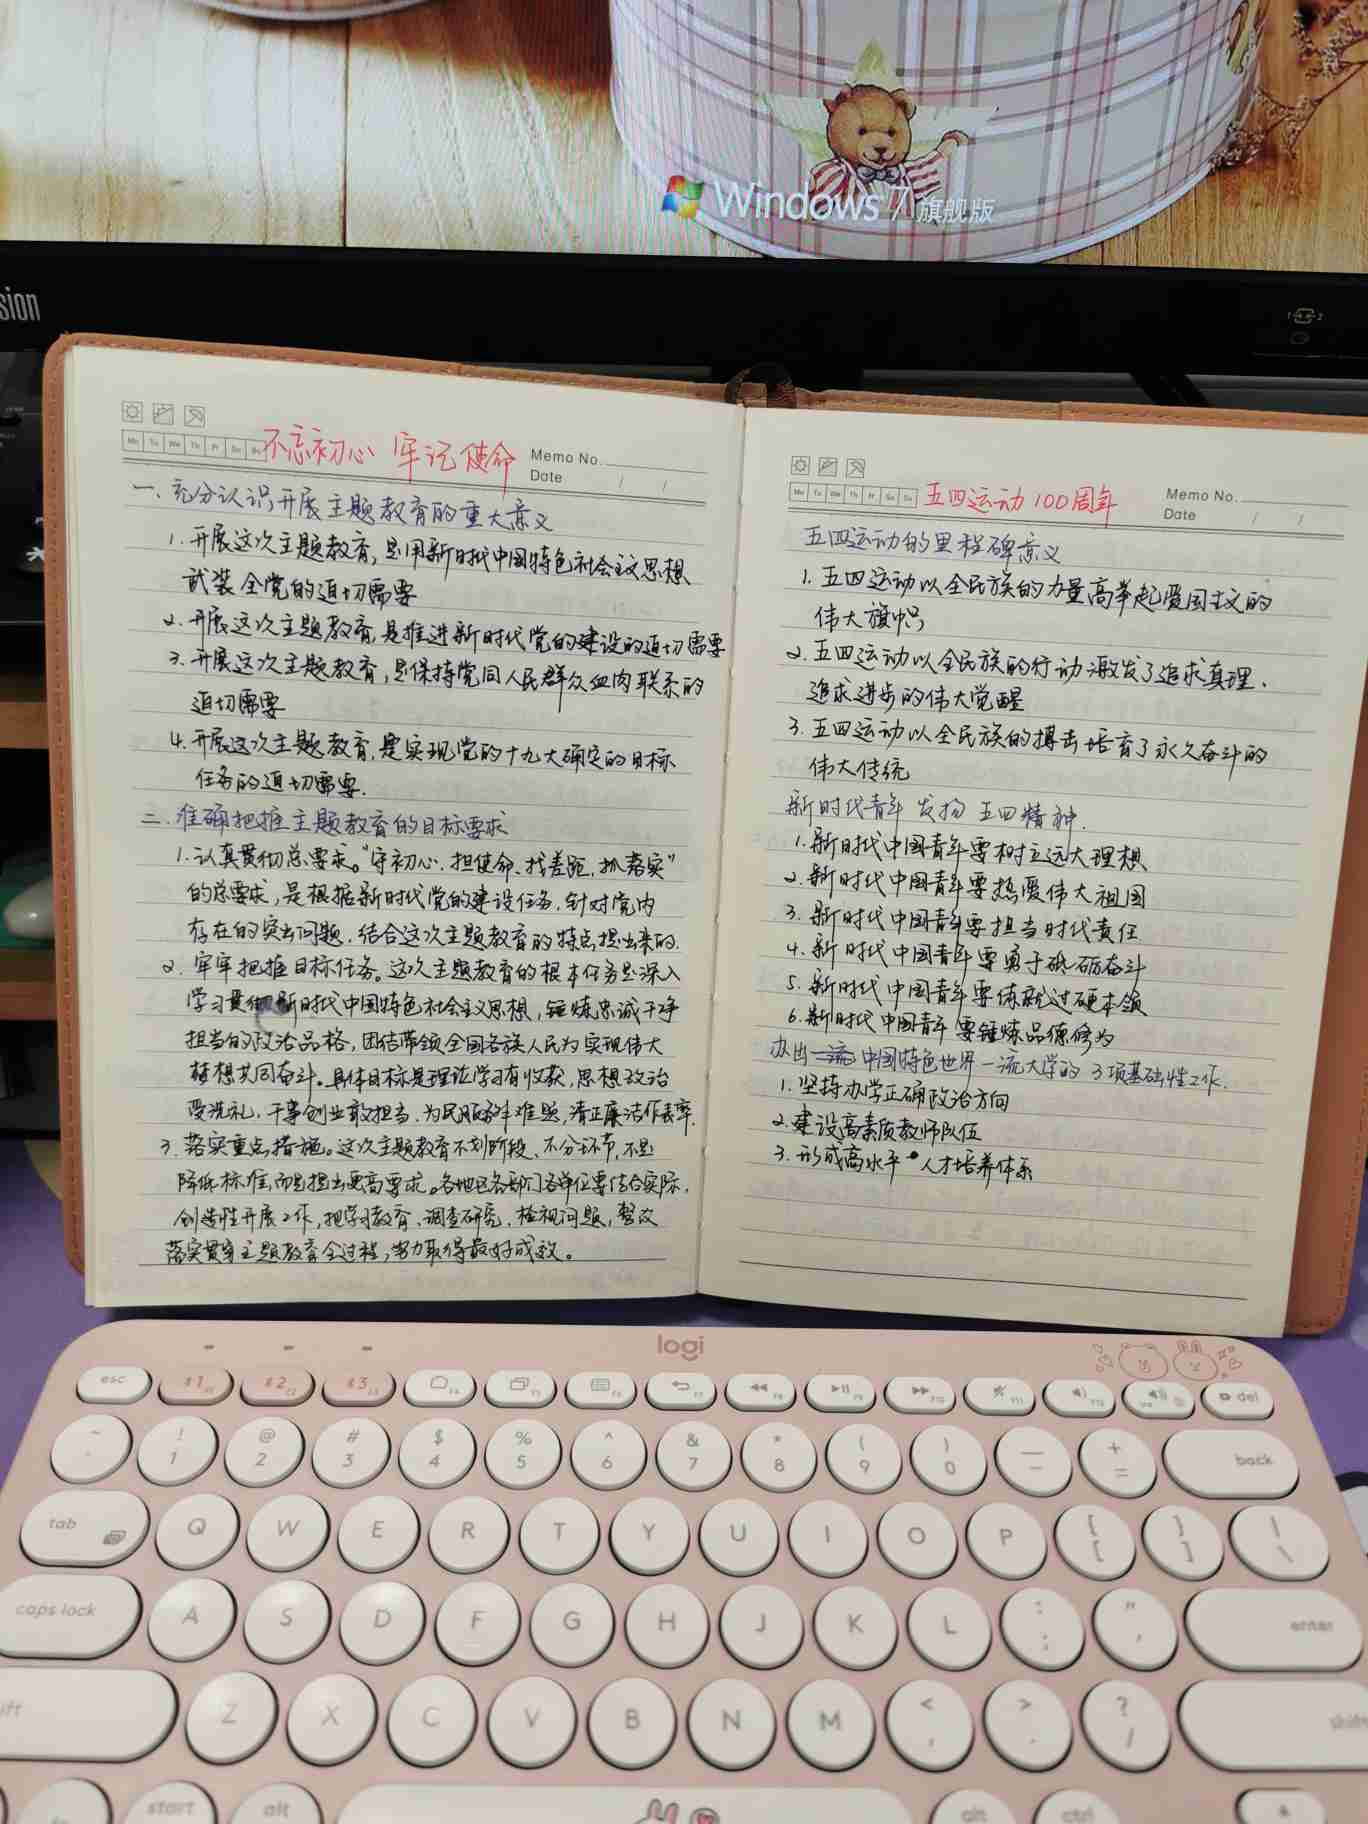 Windows 7 旗舰版
sion
1 2
Mo Tu We Th Fr Sa Su
不忘初心 牢记使命
Memo No.
Date / /
一.充分认识开展主题教育的重大意义
1.开展这次主题教育,是用新时代中国特色社会主义思想
武装全党的迫切需要
2.开展这次主题教育,是推进新时代党的建设的迫切需要
3.开展这次主题教育,是保持党同人民群众血肉联系的
迫切需要
4.开展这次主题教育,是实现党的十九大确定的目标
任务的迫切需要.
二.准确把握主题教育的目标要求
1.认真贯彻总要求。“守初心.担使命.找差距,抓落实”
的总要求,是根据新时代党的建设任务.针对党内
存在的突出问题.结合这次主题教育的特点提出来的.
2.牢牢把握目标任务。这次主题教育的根本任务是深入
学习贯彻新时代中国特色社会主义思想,锤炼忠诚干净
担当的政治品格,团结带领全国各族人民为实现伟大
梦想共同奋斗。具体目标是理论学习有收获,思想政治
受洗礼.干事创业敢担当.为民服务解难题,清正廉洁作表率.
3.落实重点措施。这次主题教育不划阶段、不分环节,不是
降低标准,而是提出更高要求。各地区各部门各单位要结合实际.
创造性开展工作,把学习教育、调查研究、检视问题,整改
落实贯穿主题教育全过程,努力取得最好成效。
Mo Tu We Th Fr Sa Su
五四运动100周年
Memo No.
Date / /
五四运动的里程碑意义
1.五四运动以全民族的力量高举起爱国主义的
伟大旗帜
2.五四运动以全民族的行动激发了追求真理.
追求进步的伟大觉醒
3.五四运动以全民族的搏击培育了永久奋斗的
伟大传统
新时代青年 发扬 五四精神.
1.新时代中国青年要树立远大理想
2.新时代中国青年要热爱伟大祖国
3.新时代中国青年要担当时代责任
4.新时代中国青年要勇于砥砺奋斗
5.新时代中国青年要练就过硬本领
6.新时代中国青年 要锤炼品德修为
办出一流中国特色世界一流大学的 3项基础性工作.
1.坚持办学正确政治方向
2.建设高素质教师队伍
3.形成高水平 人才培养体系
logi
esc 1 2 3 F4 F5 F6 F7 F8 F9 F10 F11 F12 del
~ ! 1 @ 2 # 3 $ 4 % 5 ^ 6 & 7 * 8 ( 9 ) 0 — + = back
tab Q W E R T Y U I O P { [ } ] | \
caps lock A S D F G H J K L : ; " , enter
ift Z X C V B N M < , > . ? / shift
fn start alt alt ctrl